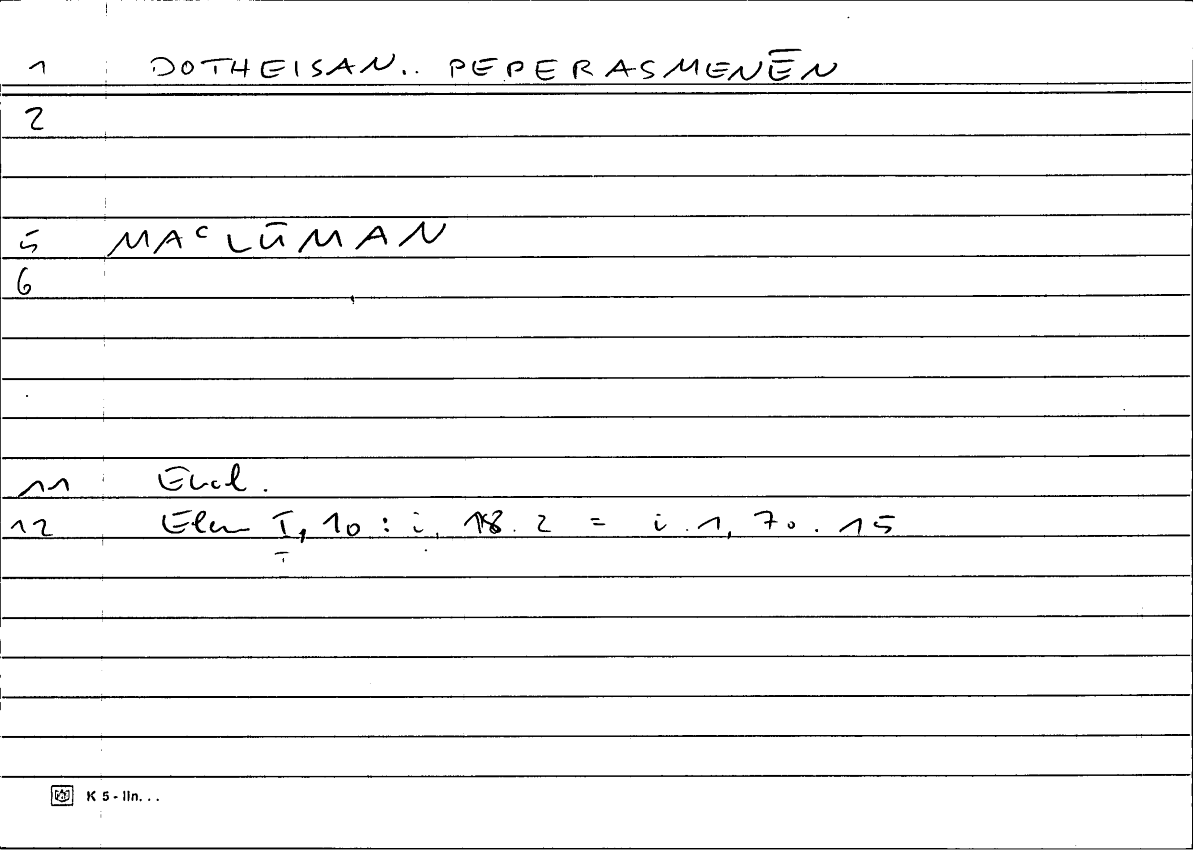 1 DOTHEISAN.. PEPERASMENĒN
2
5 MAᶜLŪMAN
6
11 Eucl.
12 Elem I, 10 : i, 18. 2 = i. 1, 70. 15
K 5 - lin...